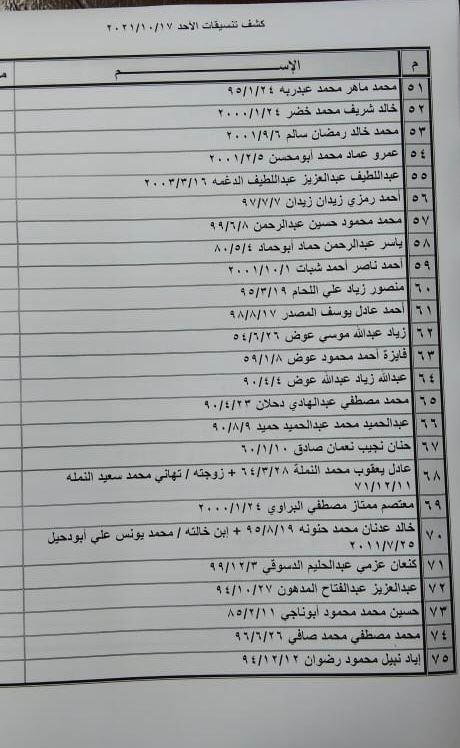 كشف تنسيقات الأحد ٢٠٢١/١٠/١٧
م الإســـــــــم
٥١ محمد ماهر محمد عبدربه ٩٥/١/٢٤
٥٢ خالد شريف محمد خضر ٢٠٠٠/١/٢٤
٥٣ محمد خالد رمضان سالم ٢٠٠١/٩/٦
٥٤ عمرو عماد محمد أبومحسن ٢٠٠١/٢/٥
٥٥ عبداللطيف عبدالعزيز عبداللطيف الدغمه ٢٠٠٣/٣/١٦
٥٦ أحمد رمزي زيدان زيدان ٩٧/٧/٧
٥٧ محمد محمود حسين عبدالرحمن ٩٩/٦/٨
٥٨ ياسر عبدالرحمن حماد أبوحماد ٨٠/٥/٤
٥٩ أحمد ناصر أحمد شبات ٢٠٠١/١٠/١
٦٠ منصور زياد علي اللحام ٩٥/٣/١٩
٦١ أحمد عادل يوسف المصدر ٩٨/٨/١٧
٦٢ زياد عبدالله موسي عوض ٥٤/٦/٢٦
٦٣ فايزة أحمد محمود عوض ٥٩/١/٨
٦٤ عبدالله زياد عبدالله عوض ٩٠/٤/٤
٦٥ محمد مصطفي عبدالهادي دحلان ٩٠/٤/٢٣
٦٦ عبدالحميد محمد عبدالحميد حميد ٩٠/٨/٩
٦٧ حنان نجيب نعمان صادق ٦٠/١/١٠
٦٨ عادل يعقوب محمد النملة ٦٤/٣/٢٨ + زوجته / تهاني محمد سعيد النمله
٧١/١٢/١١
٦٩ معتصم ممتاز مصطفي البراوي ٢٠٠٠/١/٢٤
٧٠ خالد عدنان محمد حنونه ٩٥/٨/١٩ + إبن خالته / محمد يونس علي أبودحيل
٢٠١١/٧/٢٥
٧١ كنعان عزمي عبدالحليم الدسوقي ٩٩/١٢/٣
٧٢ عبدالعزيز عبدالفتاح المدهون ٩٤/١٠/٢٧
٧٣ حسين محمد محمود أبوناجي ٨٥/٢/١١
٧٤ محمد مصطفي محمد صافي ٩٦/٦/٢٦
٧٥ إياد نبيل محمود رضوان ٩٤/١٢/١٢